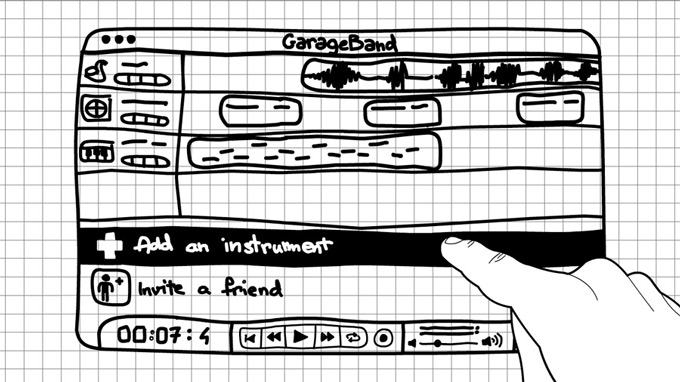 GarageBand
Add an instrument
Invite a friend
00:07:4